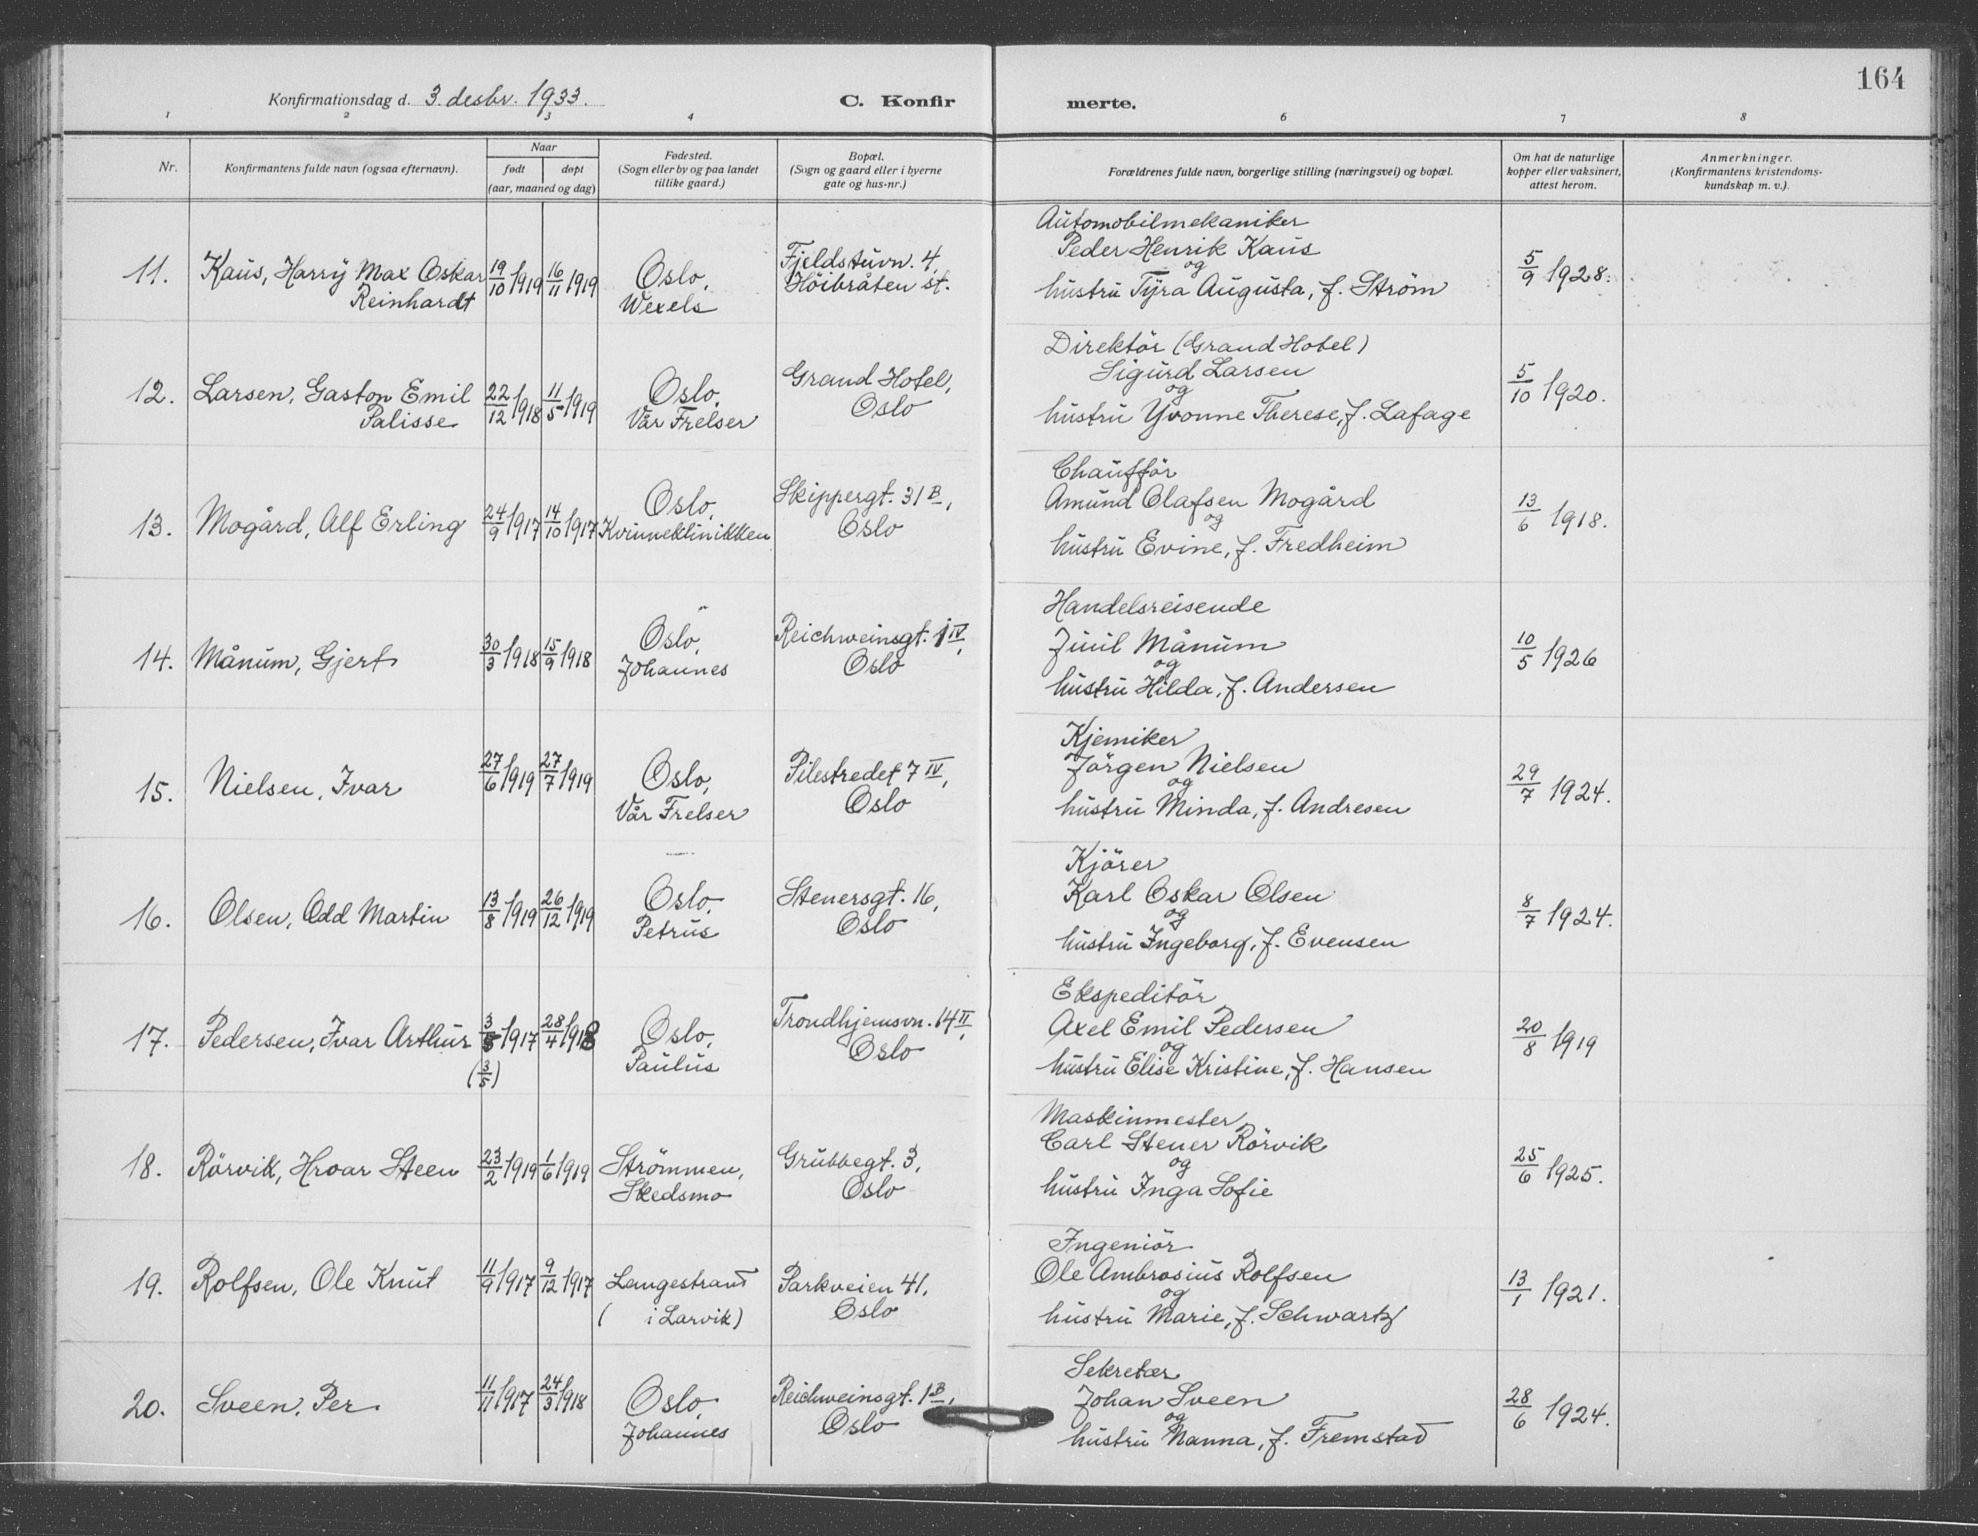 164
Konfirmationsdag d. 3. desbr. 1933. C. Konfir merte.
1 2 3 4 6 7 8
Nr.
Konfirmantens fulde navn (ogsaa efternavn).
Naar
født døpt
(aar, maaned og dag)
Fødested.
(Sogn eller by og paa landet
tillike gaard.)
Bopæl.
(Sogn og gaard eller i byerne
gate og hus-nr.)
Forældrenes fulde navn, borgerlige stilling (næringsvei) og bopæl.
Om hat de naturlige
kopper eller vaksinert,
attest herom.
Anmerkninger.
(Konfirmantens kristendoms-
kundskap m. v.).
11. Kaus, Harry Max Oskar
Reinhardt
19/10 1919 16/11 1919
Oslo,
Wexels
Fjeldstuvn. 4,
Höibråten st.
Automobilmekaniker
Peder Henrik Kaus
og
hustru Tyra Augusta, f. Ström
5/9 1928.
12. Larsen, Gaston Emil
Palisse
22/12 1918 11/5 1919
Oslo,
Vår Frelser
Grand Hotel,
Oslo
Direktör (Grand Hotel)
Sigurd Larsen
og
hustru Yvonne Therese, f. Lafage
5/10 1920.
13. Mogård, Alf Erling
24/9 1917 14/10 1917
Oslo,
Kvinneklinikken
Skippergt. 31 B,
Oslo
Chaufför
Amund Olafsen Mogård
og
hustru Evine, f. Fredheim
13/6 1918.
14. Månum, Gjert
30/3 1918 15/9 1918
Oslo,
Johannes
Reichweinsgt. 1 IV,
Oslo
Handelsreisende
Juul Månum
og
hustru Hilda, f. Andersen
10/5 1926
15. Nielsen, Ivar
27/6 1919 27/7 1919
Oslo,
Vår Frelser
Pilestredet 7 IV,
Oslo
Kjemiker
Jörgen Nielsen
og
hustru Minda, f. Andresen
29/7 1924.
16. Olsen, Odd Martin
13/8 1919 26/12 1919
Oslo,
Petrus
Stenersgt. 16,
Oslo
Kjörer
Karl Oskar Olsen
og
hustru Ingeborg, f. Evensen
8/7 1924.
17. Pedersen, Ivar Arthur
3/5 1917 28/4 1918
(3/5)
Oslo,
Paulus
Trondhjemsvn. 14 II,
Oslo
Ekspeditör
Axel Emil Pedersen
og
hustru Elise Kristine, f. Hansen
20/8 1919
18. Rörvik, Hroar Steen
23/2 1919 1/6 1919
Strömmen,
Skedsmo
Grubbegt. 3,
Oslo
Maskinmester
Carl Stener Rörvik
og
hustru Inga Sofie
25/6 1925.
19. Rolfsen, Ole Knut
11/9 1917 9/12 1917
Langestrand
( i Larvik)
Parkveien 41,
Oslo
Ingeniör
Ole Ambrosius Rolfsen
og
hustru Marie, f. Schwartz
13/1 1921.
20. Sveen, Per
11/11 1917 24/3 1918
Oslo,
Johannes
Reichweinsgt. 1 B,
Oslo
Sekretær
Johan Sveen
og
hustru Nanna, f. Fremstad
28/6 1924.